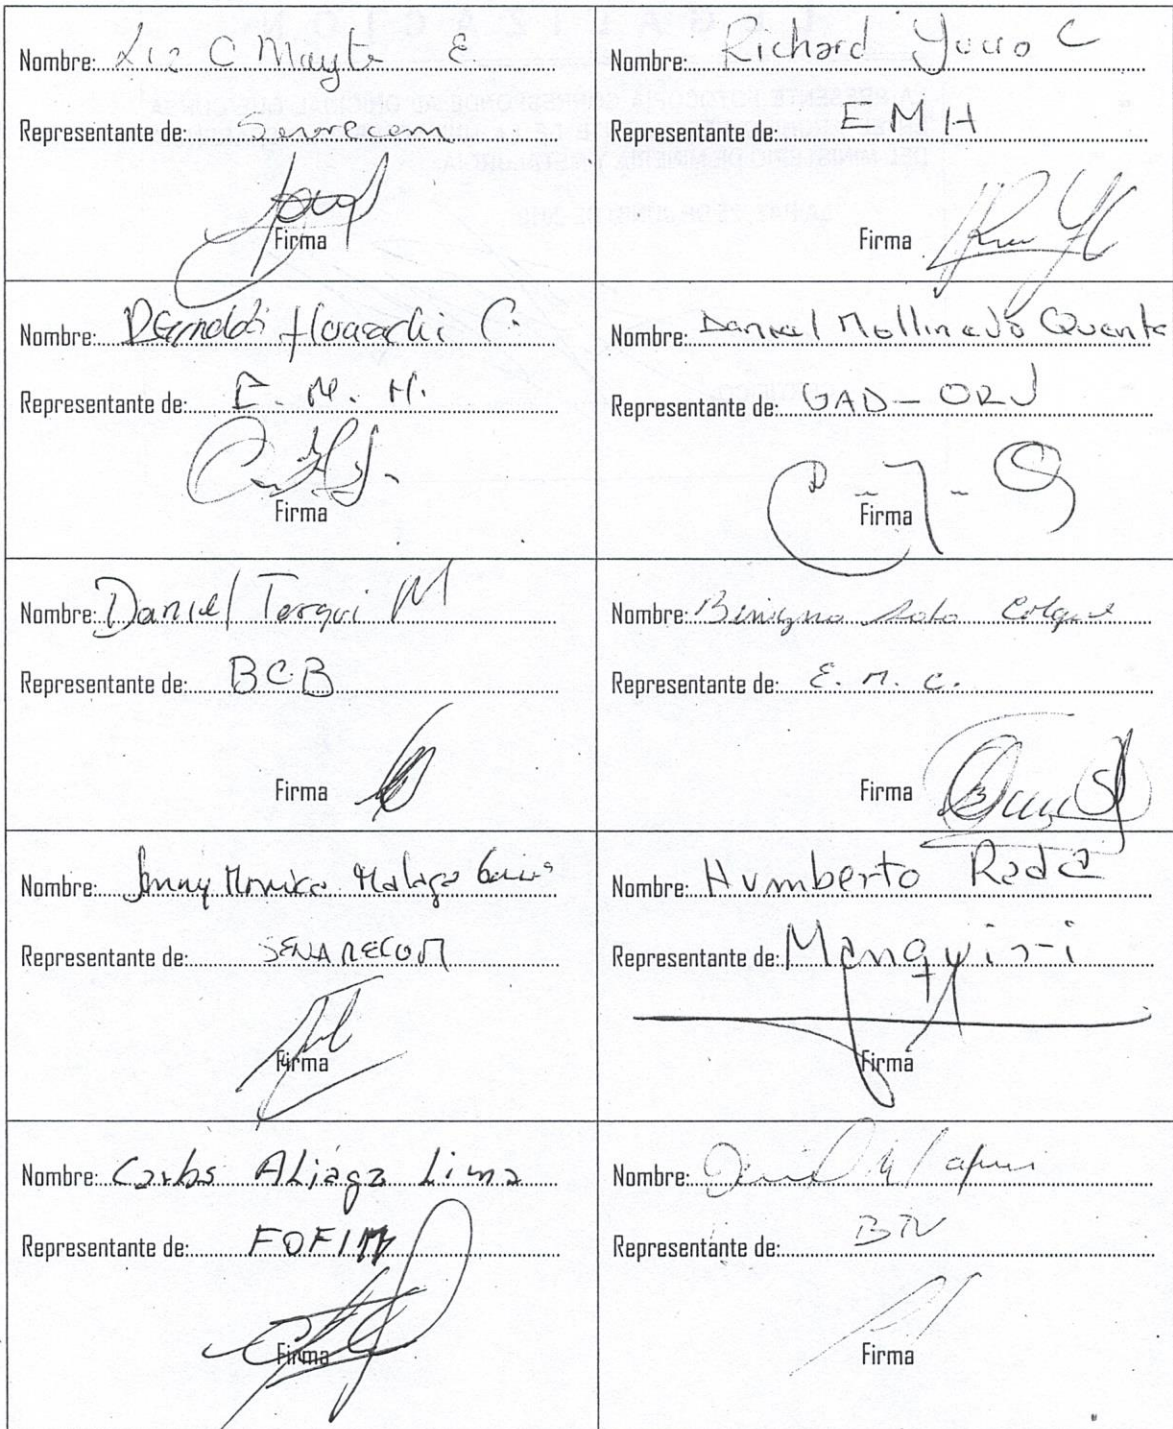 Nombre: Liz C Mayta E.
Representante de: Senarecom
Firma
Nombre: Richard Yucro C
Representante de: EMH
Firma
Nombre: C.
Representante de: E. M. H.
Firma
Nombre: Daniel Mollinedo Quent
Representante de: GAD-ORU
Firma
Nombre: Daniel Terqui M
Representante de: BCB
Firma
Nombre: Benigno Soto Colque
Representante de: E. M. C.
Firma
Nombre: Jenny Monica Malaga
Representante de: SENARECOM
Firma
Nombre: Humberto Rada
Representante de: Manquiri
Firma
Nombre: Carlos Aliaga Lima
Representante de: FOFIM
Firma
Nombre:
Representante de:
Firma